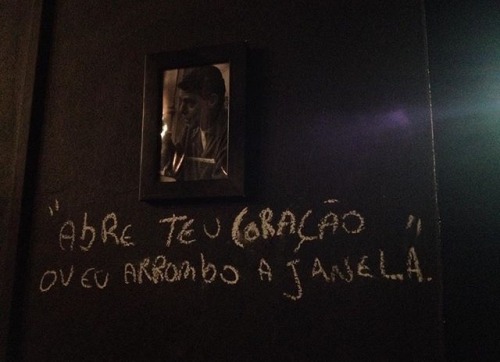 "ABRE TEU CORAÇÃO
OU EU ARROMBO A JANELA."